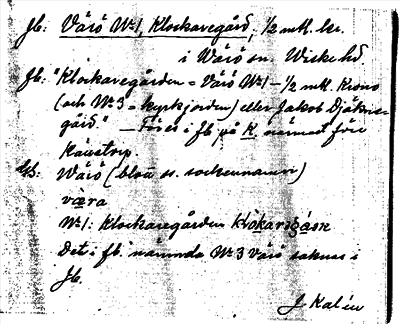 Jb: Värö Nr 1, Klockaregård, 1/2 mtl. kr.
i Värö sn. Viske hd
Jb: "Klockaregården = Värö Nr 1 - 1/2 mtl. Krono
(och Nr 3 = kyrkjorden) eller Jakob Djäkne-
gård." — Föres i jb på K. närmast före
Kärestrop.
Värö (blott ss. sockennamn)
vära
Nr 1: Klockaregården
Det i jb. nämnda Nr 3 Värö saknas i
Jb.
J. Kalén